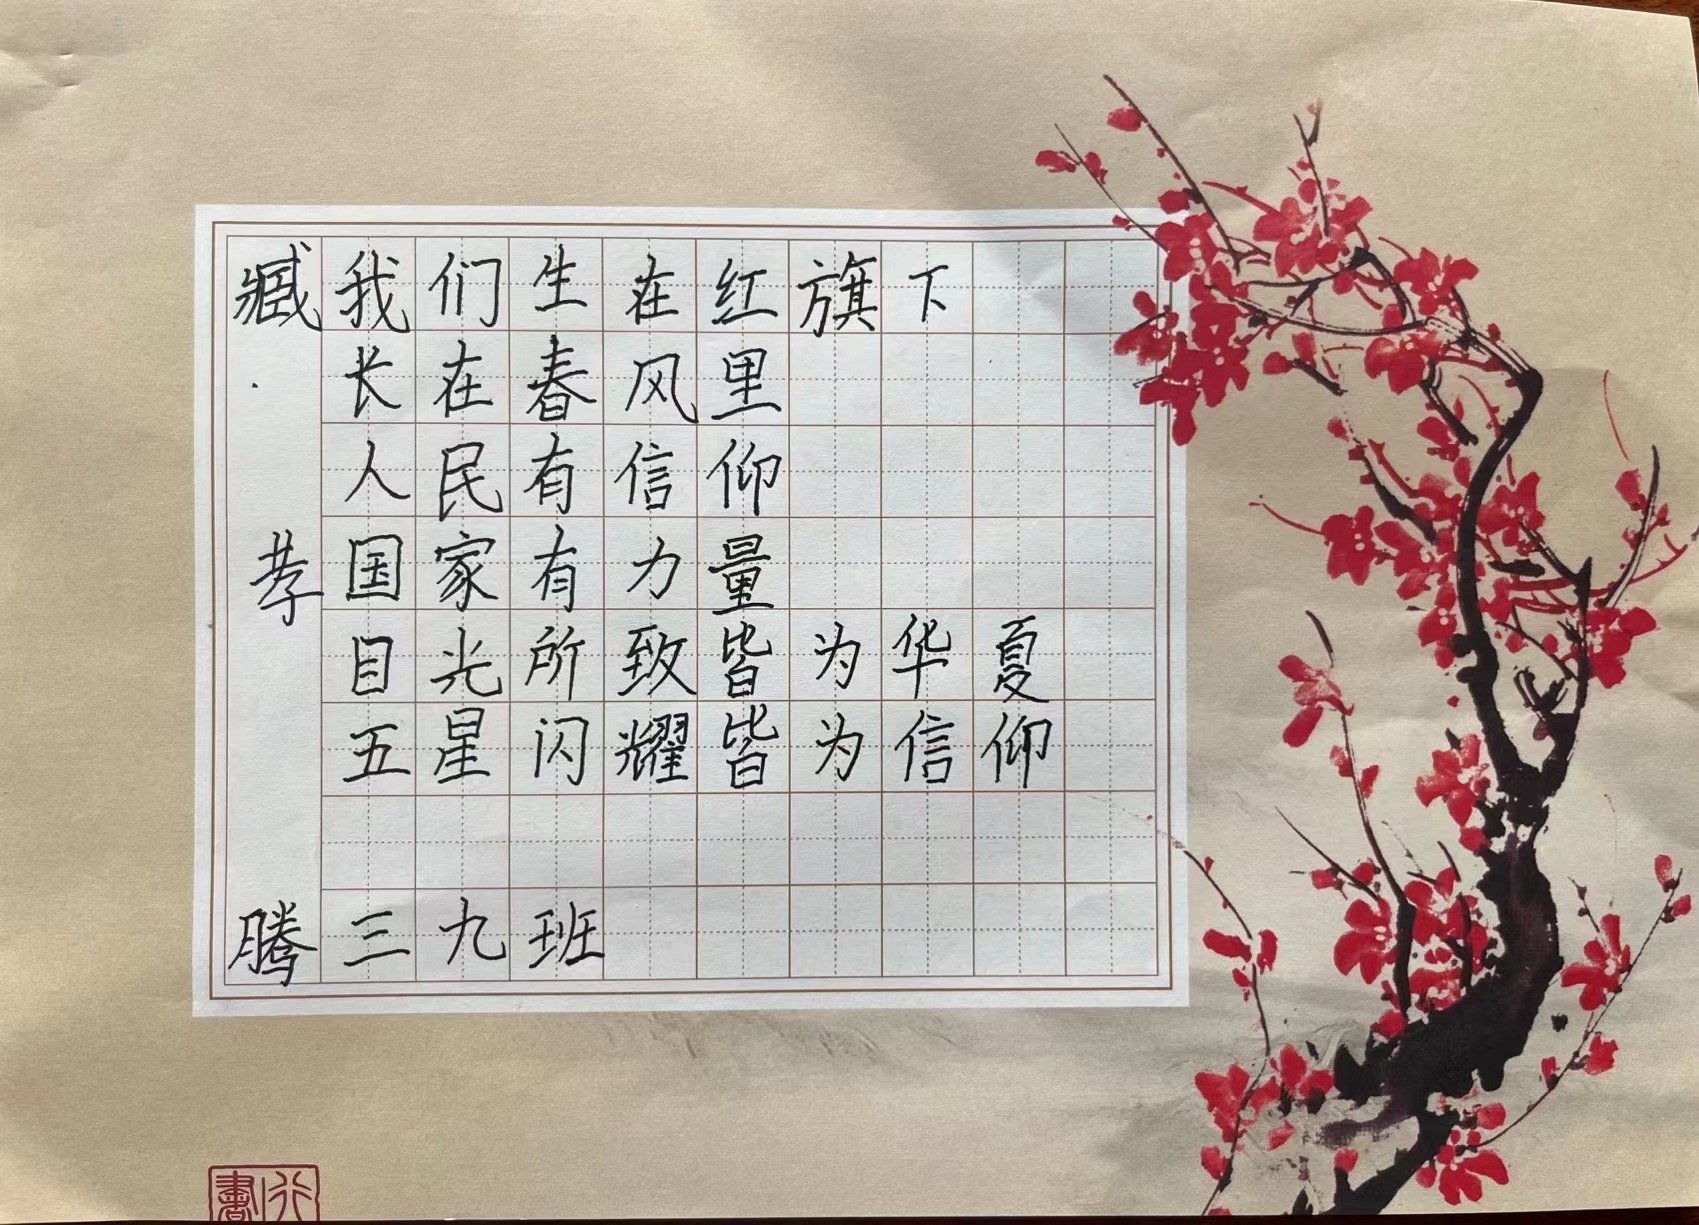 我们生在红旗下
长在春风里
人民有信仰
国家有力量
目光所致皆为华夏
五星闪耀皆为信仰
三九班
臧
孝
腾